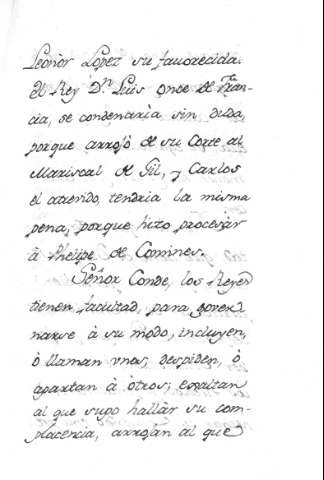 Leoñor Lopez su fauorecida.
El Rey D.ⁿ Luis once de Fran-
cia, se condenaria sin duda,
porque arrojó de su Corte al
Mariscal de Gil, y Carlos
el atrevido, tendria la misma
pena, porque hizo procesar
à Phelipe de Comines.
Señor Conde, los Reyes
tienen facultad, para gover-
narse à su modo, incluyen,
ò llaman vnos, despiden, ò
apartan à otros; exaltan
al que supo hallar su com-
placencia, arrojan al que